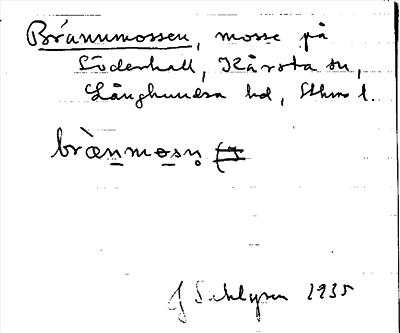 Brännmossen, mosse på
Söderhall, Kårsta sn,
Långhundra hd, Sthms l.
bræ̀nmosn̥
J Sahlgren 1935